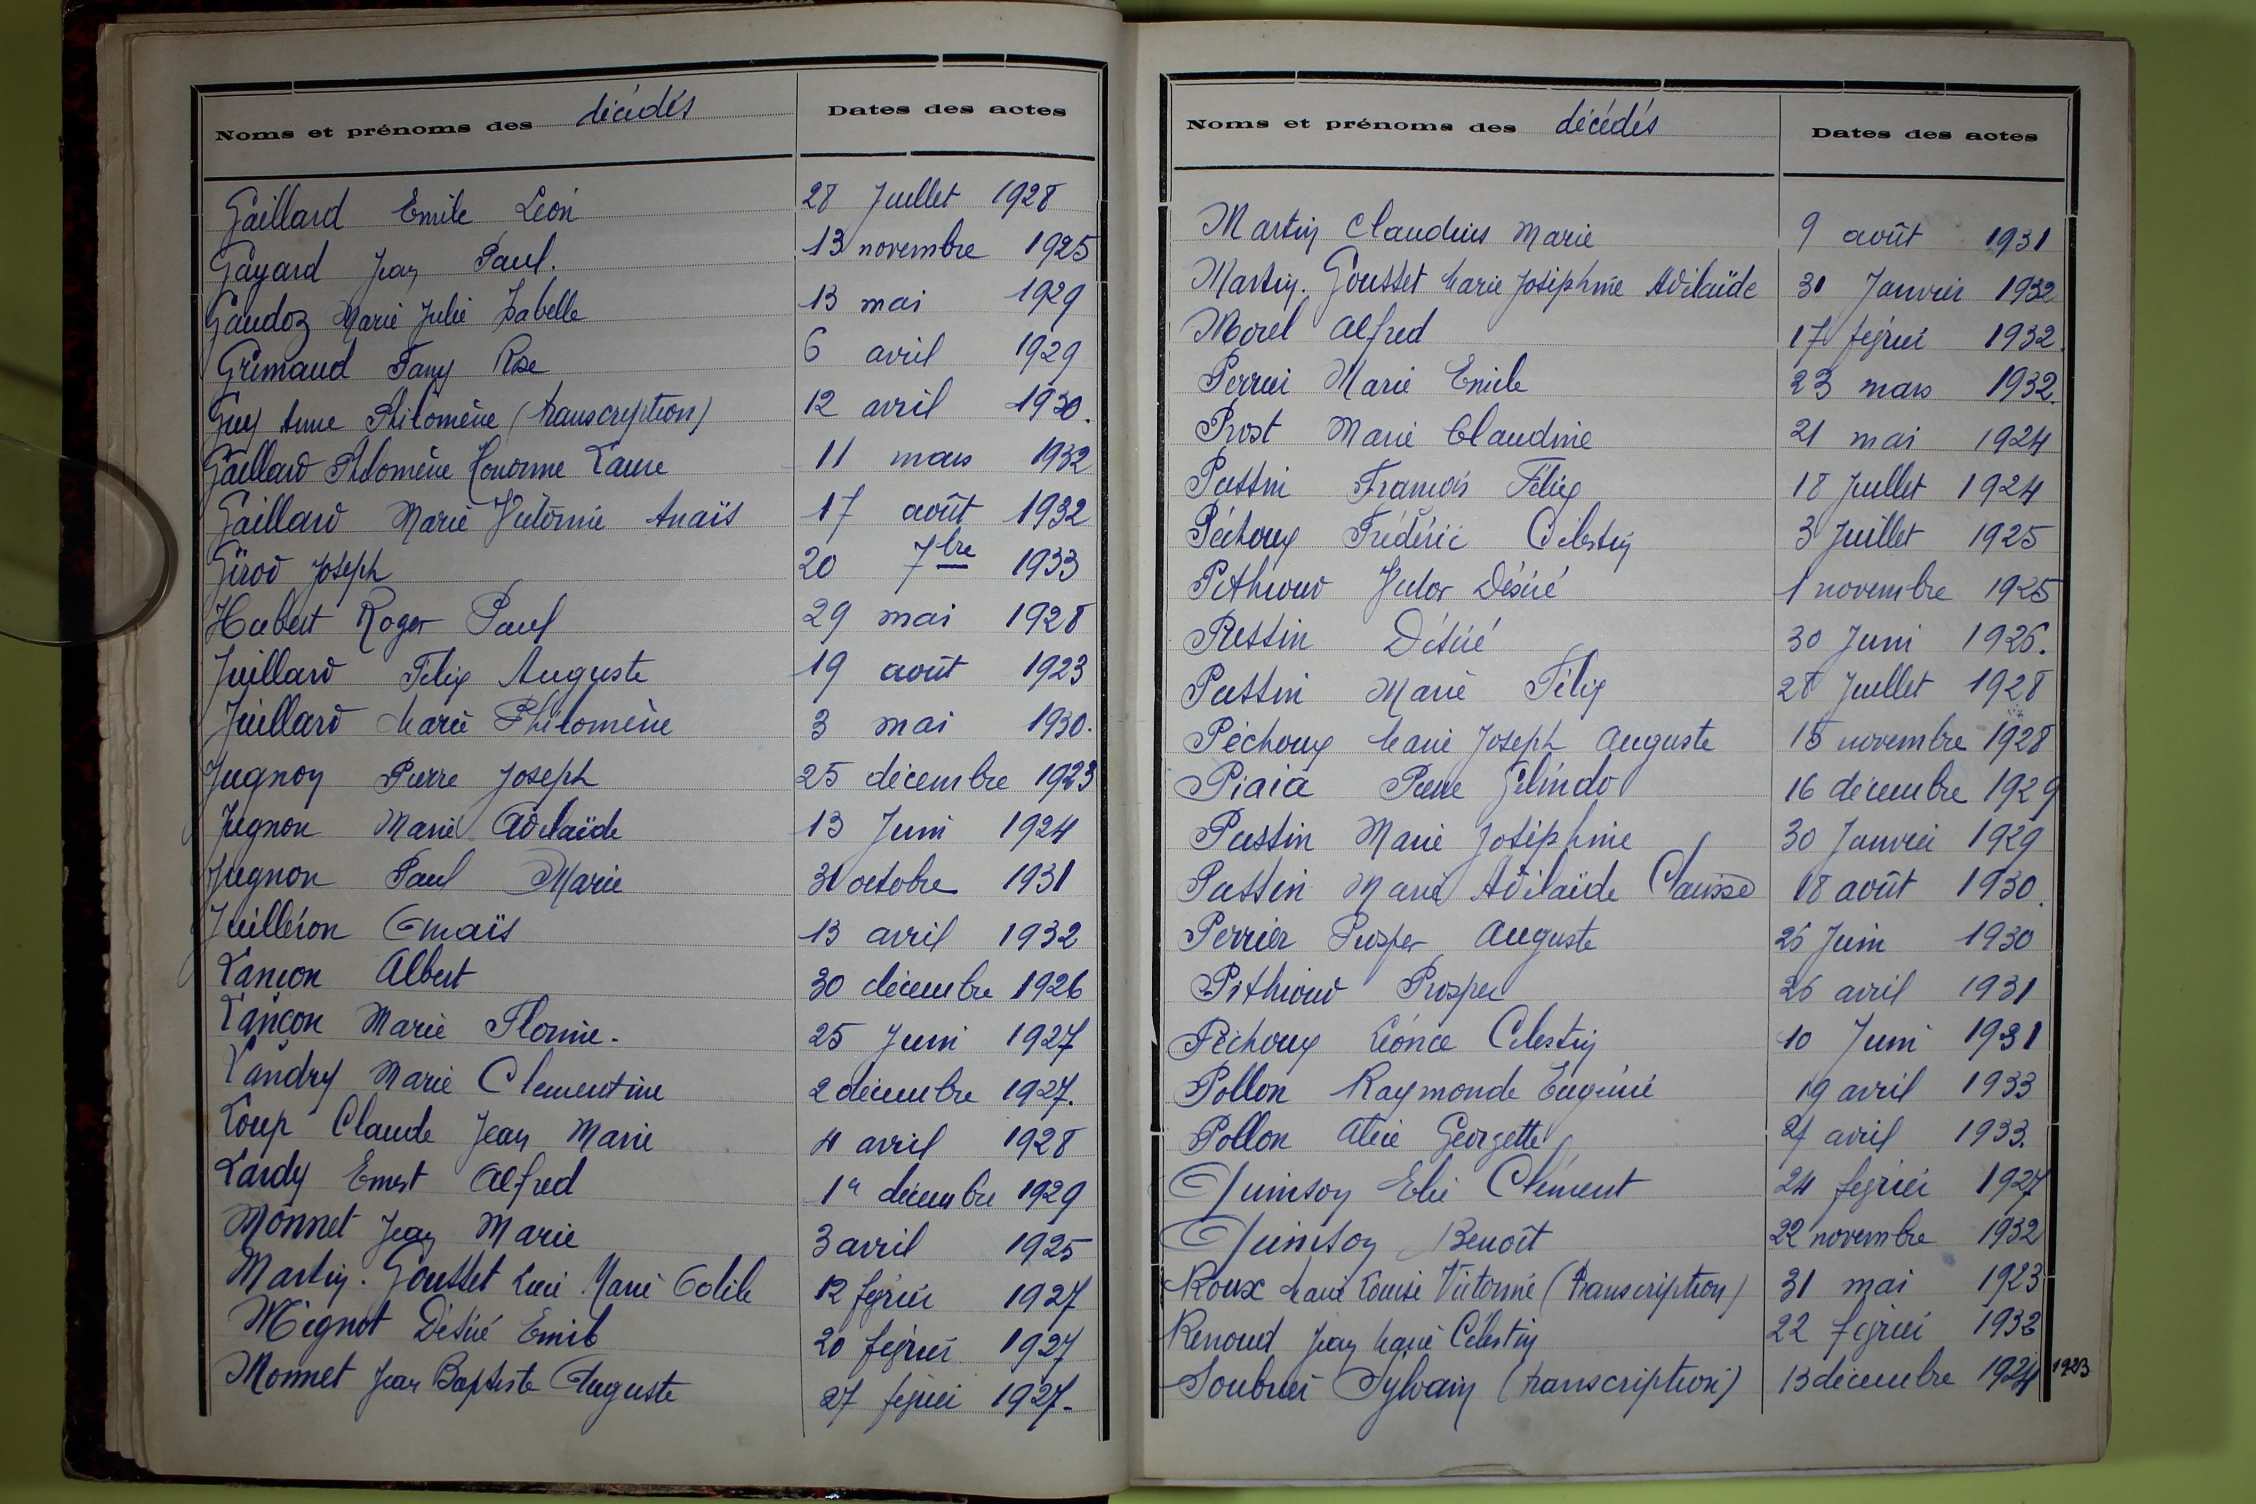 Noms et prénoms des décédés Dates des actes
Gaillard Emile Léon 28 Juillet 1928
Gayard Jean Paul. 13 novembre 1925
Gaudoz Marie Julie Isabelle 13 mai 1929
Grimaud Fany Rose 6 avril 1929
Guy Anne Philomène (transcription) 12 avril 1930.
Gaillard Philomène Honorine Laure 11 mars 1932
Gaillard Marie Victorine Anaïs 17 août 1932
Girod Joseph 20 7bre 1933
Hubert Roger Paul 29 mai 1928
Juillard Félix Auguste 19 août 1923
Juillard Marie Philomène 3 mai 1930.
Jugnon Pierre Joseph 25 décembre 1923
Jugnon Marie Adélaïde 13 Juin 1924
Jugnon Paul Marie 31 octobre 1931
Juilléron 13 avril 1932
Lançon Albert 30 décembre 1926
Lançon Marie Florine. 25 Juin 1927
Landry Marie Clementine 2 décembre 1927.
Loup Claude Jean Marie 4 avril 1928
Lardy Ernest Alfred 1er décembre 1929
Monnet Jean Marie 3 avril 1925
Martin. Gousset Marie Odile 12 février 1927
Mignot Désiré Emile 20 février 1927
Monnet Jean Baptiste Auguste 27 février 1927.
Noms et prénoms des décédés Dates des actes
Martin Claudius Marie 9 août 1931
Martin. Gousset Marie Joséphine Adélaïde 31 Janvier 1932
Morel Alfred 17 février 1932.
Perrier Marie Emile 23 mars 1932.
Prost Marie Claudine 21 mai 1924
Putin François Félix 18 Juillet 1924
Péchoux Frédéric Célestin 3 Juillet 1925
Pithioud Victor Désiré 1 novembre 1925
Désiré 30 Juin 1926.
Marie Félix 28 Juillet 1928
Péchoux Marie Joseph Auguste 15 novembre 1928
Piaia Pierre Gelindo 16 décembre 1929
Marie Joséphine 30 Janvier 1929
Marie Adélaïde Clarisse 18 août 1930.
Perrier Prosper Auguste 26 Juin 1930
Pithioud Prosper 26 avril 1931
Péchoux Léonce Célestin 10 Juin 1931
Pollon Raymonde Eugénie 19 avril 1933
Pollon Alice Georgette 27 avril 1933.
Quinson Elie Clément 24 février 1927
Quinson Benoît 22 novembre 1932
Roux Marie Louise Victorine (transcription) 31 mai 1923
Renoud Jean Marie Célestin 22 février 1932
Soubrier Sylvain (transcription) 13 décembre 1924 1923